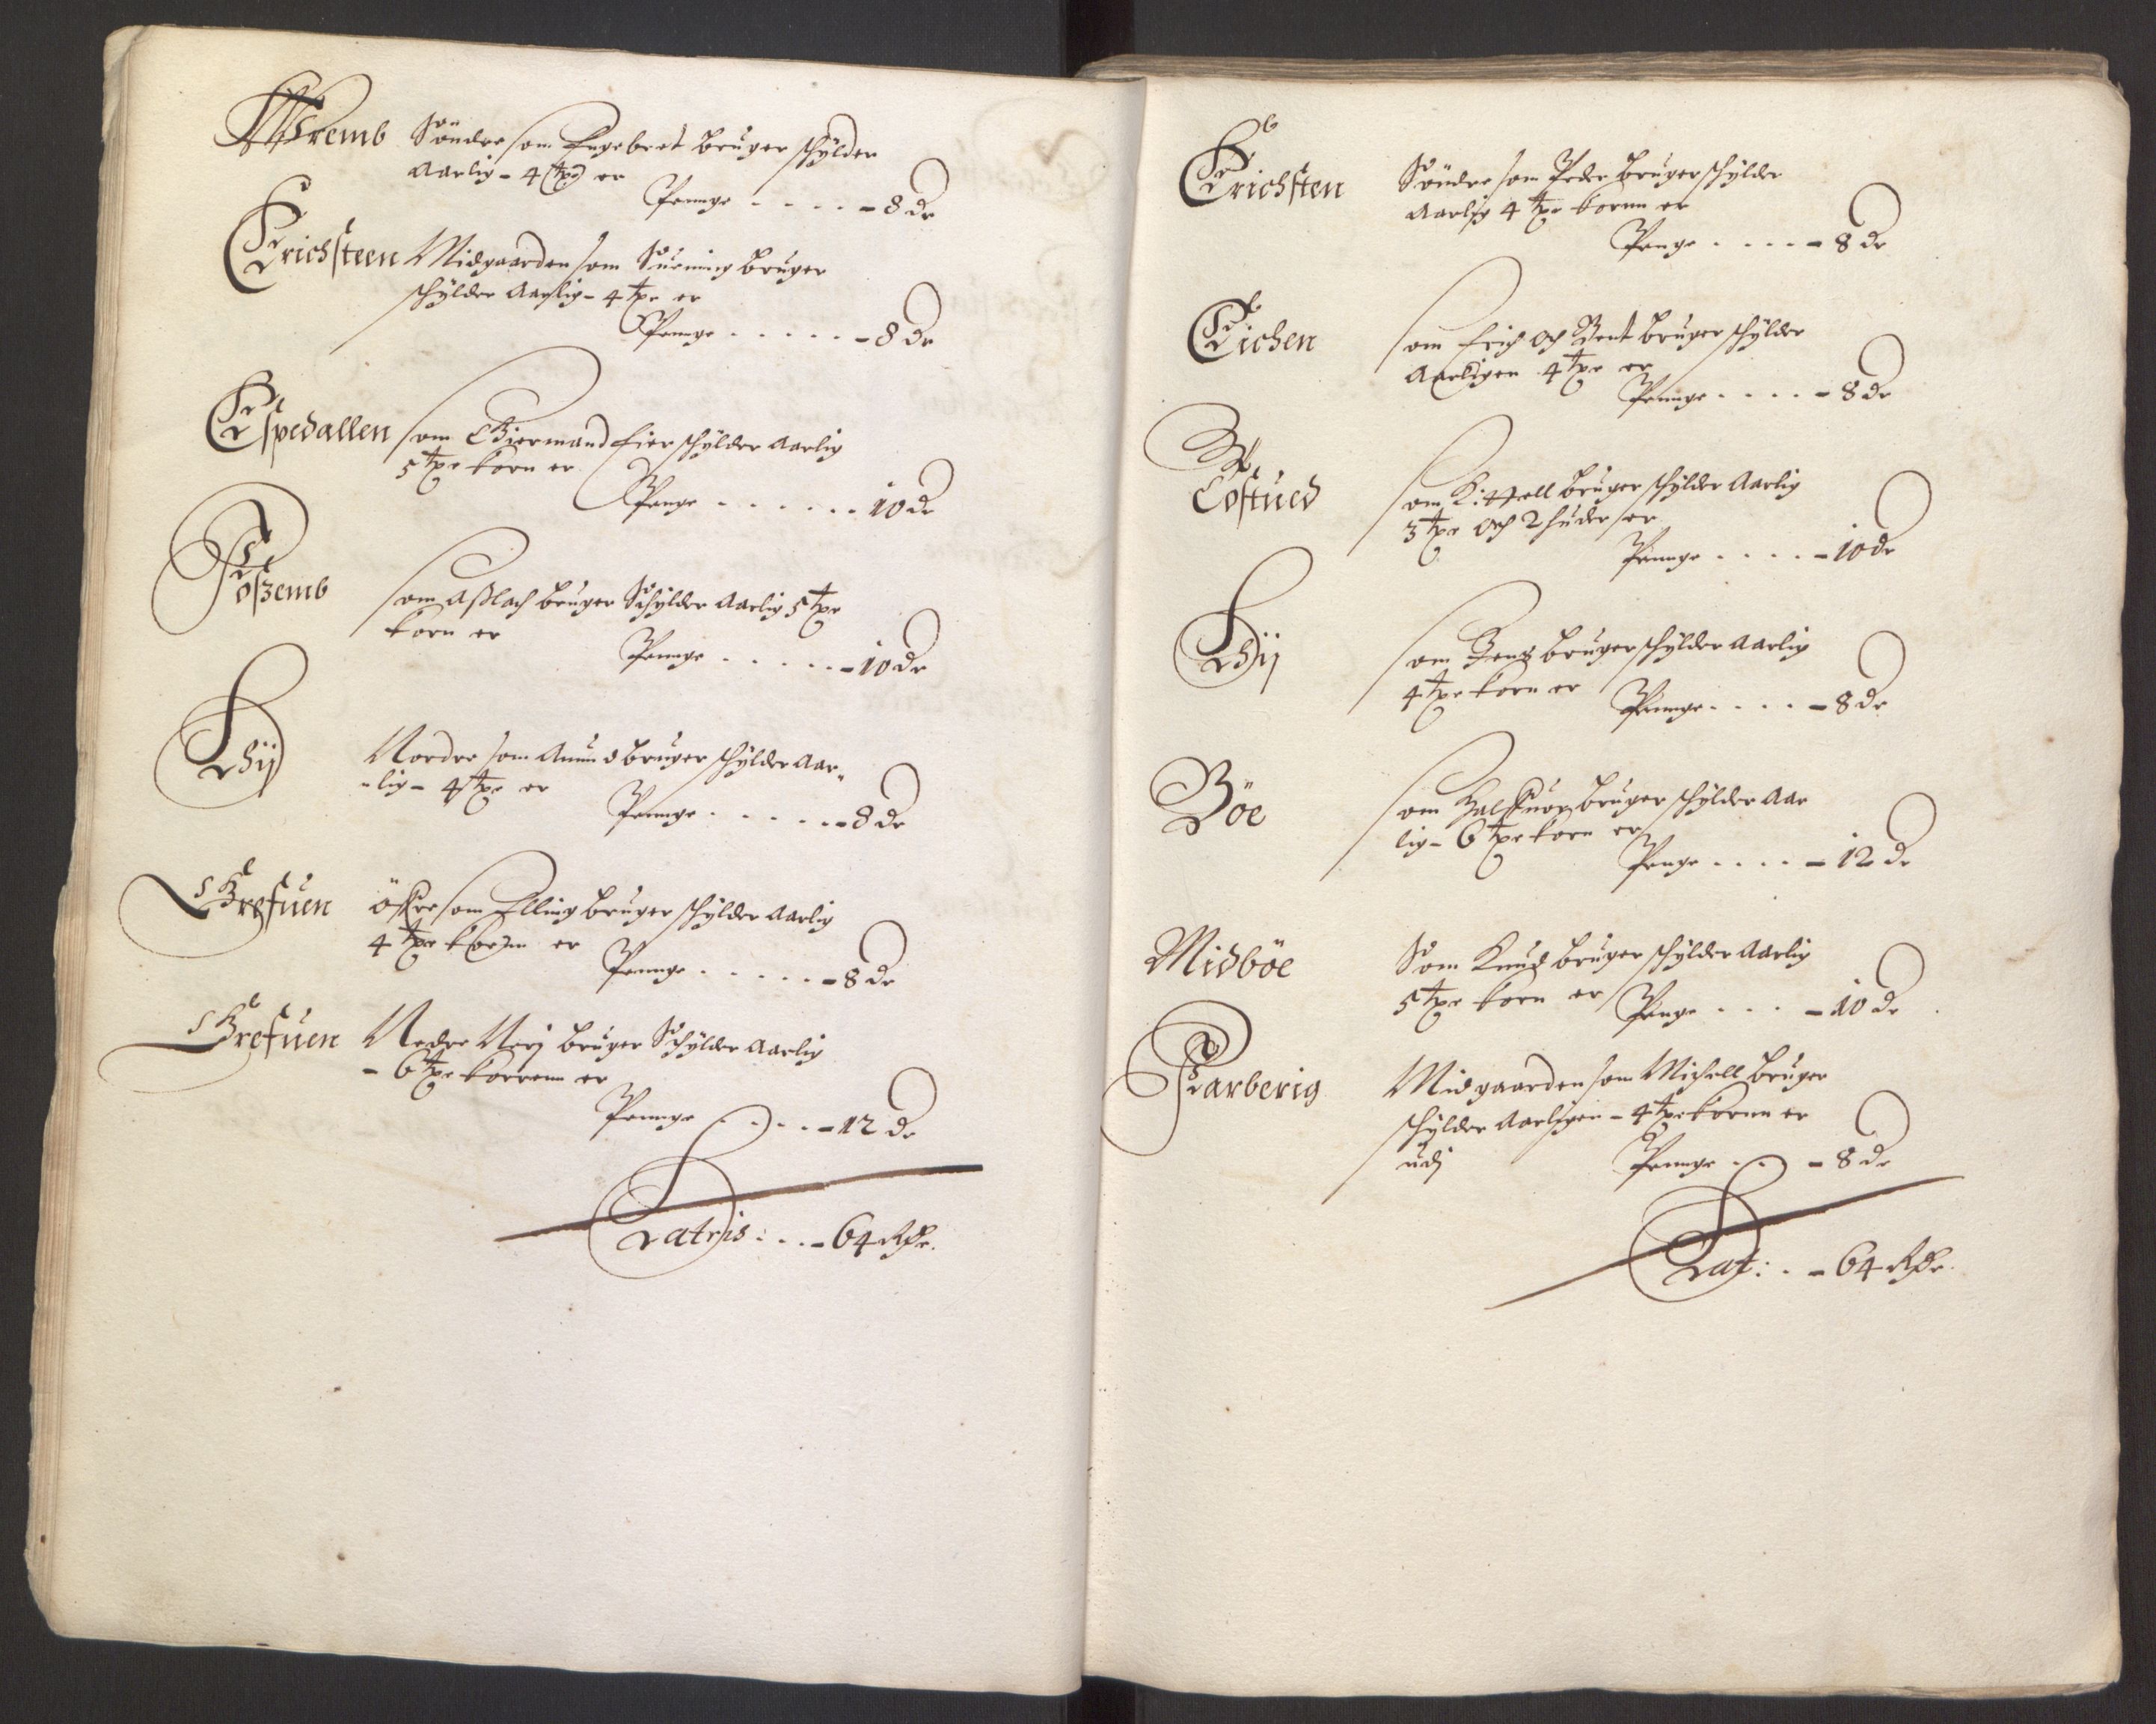 Fremb Söndre som Engebret bruger schylder
Aarlig - 4 tpr er
Penge - 8 dr
Erichsteen Midgaarden som bruger
schylder Aarlig - 4 tpr er
Penge - 8 dr
Espedallen som Biermand Eier schylder Aarlig
5 tpr korn er
Penge - 10 dr
Foszemb som Aszlach bruger Schylder Aarlig 5 tpr
korn er
Penge - 10 dr
Lij Nordre som Amund bruger schylder Aar
lig - 4 tpr er
Penge - 8 dr
Grefuen östre som Elling bruger schylder Aarlig
4 tpr korn er
Penge - 8 dr
Grefuen Nedre bruger Schylder Aarlig
- 6 tpr korenn er
Penge - 12 dr
Lateris: - 64 Rdr.
Erichsten Söndre som Peder bruger schylder
Aarlig 4 tpr kornn er
Penge - 8 dr
Eichen som Erich och Bent bruger schylder
Aarligen 4 tpr er
Penge - 8 dr
som Kittell bruger schylder Aarlig
3 tpr och 2 huder er
Penge - 10 dr
Lij som bruger schylder Aarlig
4 tpr korn er
Penge - 8 dr
Böe som Halfuor bruger schylder Aar
lig - 6 tpr korn er
Penge - 12 dr
Midböe Som Knud bruger schylder Aarlig
5 tpr korn er
Penge - 10 dr
Farberig Midgaarden som Michell bruger
schylder Aarligen - 4 tpr kornn er
udj Penge - 8 dr
Lat: - 64 Rdr.